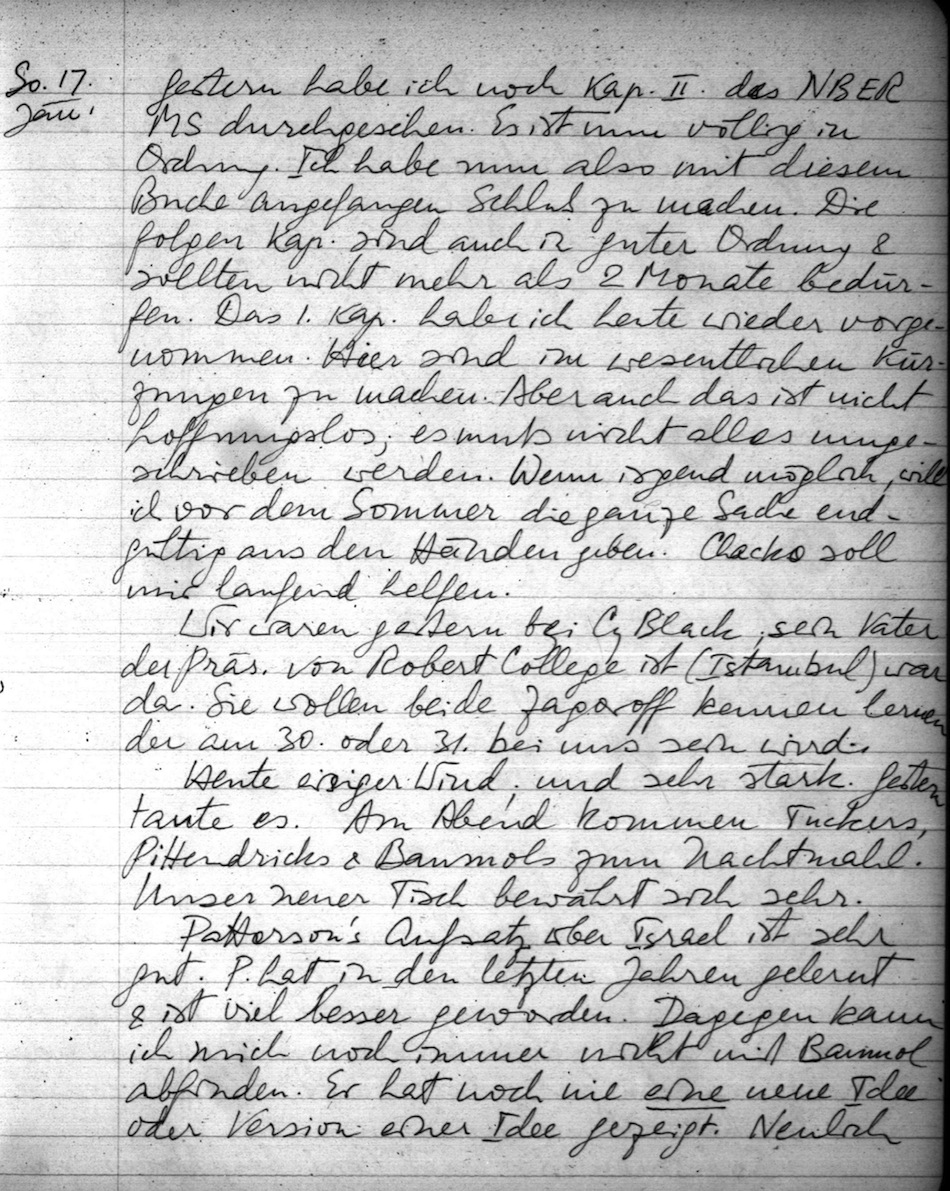 So. 17. Gestern habe ich noch Kap. II. des NBER
Jän. MS durchgesehen. Es ist nun völlig in
Ordnung. Ich habe nun also mit diesem
Buche angefangen Schluß zu machen. Die
folgen Kap. sind auch in guter Ordnung &
sollten nicht mehr als 2 Monate bedür-
fen. Das 1. Kap. habe ich heute wieder vorge-
nommen. Hier sind im wesentlichen Kür-
zungen zu machen. Aber auch das ist nicht
hoffnungslos; es muß nicht alles umge-
schrieben werden. Wenn irgend möglich, will
ich vor dem Sommer die ganze Sache end-
gültig aus den Händen geben. Chacko soll
mir laufend helfen.
Wir waren gestern bei Cy Black, sein Vater
der Präs. von Robert College ist (Istambul) war
da. Sie wollen beide Zagoroff kennen lernen
der am 30. oder 31. bei uns sein wird.
Heute eisiger Wind, und sehr stark. Gestern
taute es. Am Abend kommen Tuckers,
Pittendrichs & Baumols zum Nachtmahl.
Unser neuer Tisch bewährt sich sehr.
Patterson's Aufsatz über Israel ist sehr
gut. P. hat in den letzten Jahren gelernt
& ist viel besser geworden. Dagegen kann
ich mich noch immer nicht mit Baumol
abfinden. Er hat noch nie eine neue Idee
oder Version einer Idee gezeigt. Neulich